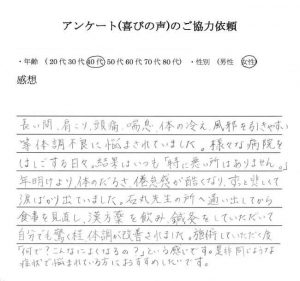 アンケート(喜びの声)のご協力依頼
・年齢 (20代30代40代50代60代70代80代) ・性別 (男性 女性)
感想
長い間、肩こり、頭痛、喘息、体の冷え、風邪を引きやすい
等体調不良に悩まされていました。様々な病院を
はしごする日々。結果はいつも「特に悪い所はありません。」
年明けより、体のだるさ、倦怠感が酷くなり、悲しくて
涙ばかり出ていました。石丸先生の所へ通い出してから
食事を見直し、漢方薬を飲み、鍼灸をしていただいて
自分でも驚く程、体調が改善されました。施術していただく度
「何で?こんなによくなるの?」という感じです。是非同じような
症状で悩まれている方におすすめしたいです。